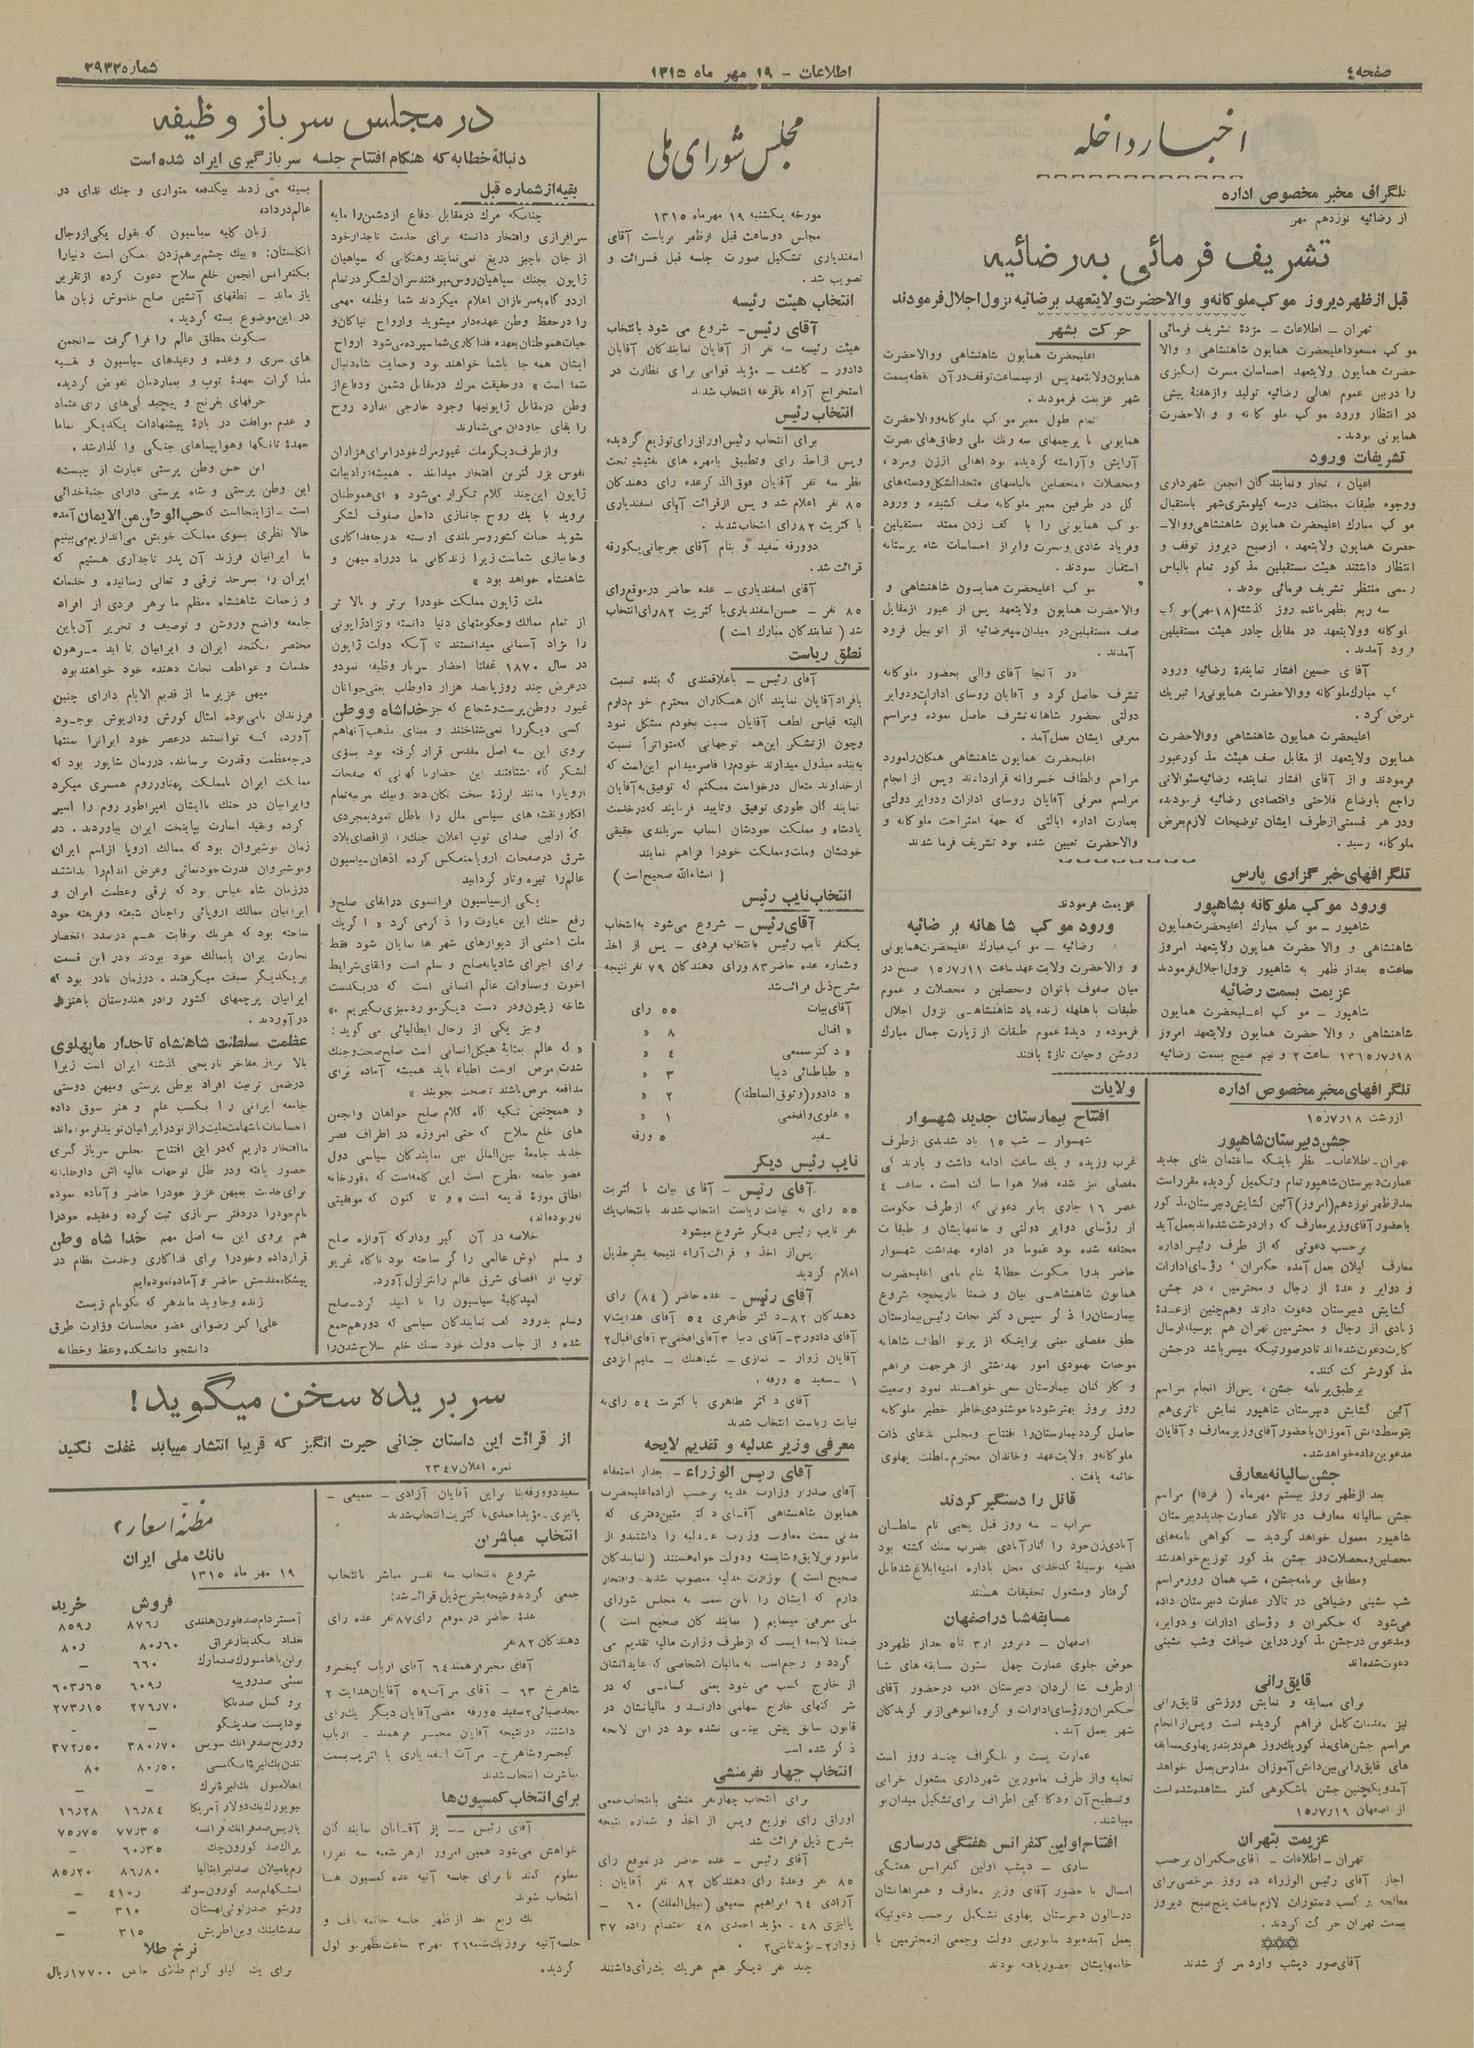 صفحه ٤
اطلاعات - ١٩ مهر ماه ١٣١٥
شماره ٢٩٣٢
اخبار داخله
تلگراف مخبر مخصوص اداره
از رضائیه نوزدهم مهر
تشریف فرمائی به رضائیه
قبل از ظهر دیروز موکب ملوکانه و والاحضرت ولایتعهد برضائیه نزول اجلال فرمودند
تهران - اطلاعات - مژدهٔ تشریف فرمائی
موکب مسعود اعلیحضرت همایون شاهنشاهی و والا
حضرت همایون ولایتعهد احساسات مسرت انگیزی
را در بین عموم اهالی رضائیه تولید و از هفتهٔ پیش
در انتظار ورود موکب ملوکانه و والاحضرت
همایونی بودند.
تشریفات ورود
اعیان ، تجار و نمایندگان انجمن شهرداری
و وجوه طبقات مختلف در سه کیلومتری شهر باستقبال
موکب مبارک اعلیحضرت همایون شاهنشاهی و والا-
حضرت همایون ولایتعهد ، از صبح دیروز توقف و
انتظار داشتند هیئت مستقبلین مذکور تمام بالباس
رسمی منتظر تشریف فرمائی بودند.
سه ربع بظهر مانده روز گذشته (١٨ مهر) موکب
ملوکانه و ولایتعهد در مقابل چادر هیئت مستقبلین
فرود آمدند.
آقای حسین افشار نمایندهٔ رضائیه ورود
موکب مبارک ملوکانه و والاحضرت همایونی را تبریک
عرض کرد.
اعلیحضرت همایون شاهنشاهی و والاحضرت
همایون ولایتعهد از مقابل صف هیئت مذکور عبور
فرمودند و از آقای افشار نماینده رضائیه سئوالاتی
راجع باوضاع فلاحتی و اقتصادی رضائیه فرمودند
و در هر قسمتی از طرف ایشان توضیحات لازم بعرض
ملوکانه رسید.
حرکت بشهر
اعلیحضرت همایون شاهنشاهی و والاحضرت
همایون ولایتعهد پس از نیمساعت توقف در آن نقطه بسمت
شهر عزیمت فرمودند.
تمام طول معبر موکب ملوکانه و والاحضرت
همایونی با پرچمهای سه رنگ ملی و طاق های نصرت
آرایش و آراسته گردیده بود اهالی از زن و مرد ،
و محصلات ، محصلین بالباسهای متحدالشکل و دسته های
گل در طرفین معبر ملوکانه صف کشیده و ورود
موکب همایونی را با کف زدن ممتد مستقبلین
و فریاد شادی و مسرت و ابراز احساسات شاه پرستانه
استقبال نمودند.
موکب اعلیحضرت همایون شاهنشاهی و
والاحضرت همایون ولایتعهد پس از عبور از مقابل
صف مستقبلین در میدان سپه رضائیه از اتومبیل فرود
آمدند.
در آنجا آقای والی بحضور ملوکانه
تشرف حاصل کرد و آقایان روسای ادارات و دوایر
دولتی بحضور شاهانه تشرف حاصل نموده و مراسم
معرفی ایشان بعمل آمد.
اعلیحضرت همایون شاهنشاهی همگان را مورد
مراحم و الطاف خسروانه قرار دادند و پس از انجام
مراسم معرفی آقایان روسای ادارات و دوایر دولتی
بعمارت اداره ایالتی که جهة استراحت ملوکانه و
والاحضرت تعیین شده بود تشریف فرما شدند
تلگرافهای خبرگزاری پارس
ورود موکب ملوکانه بشاهپور
شاهپور - موکب مبارک اعلیحضرت همایون
شاهنشاهی و والا حضرت همایون ولایتعهد امروز
ساعت ٥ بعد از ظهر به شاهپور نزول اجلال فرمودند
عزیمت بسمت رضائیه
شاهپور - موکب اعلیحضرت همایون
شاهنشاهی و والا حضرت همایون ولایتعهد امروز
١٣١٥/٧/١٨ ساعت ٢ و نیم صبح بسمت رضائیه
عزیمت فرمودند
ورود موکب شاهانه برضائیه
رضائیه - موکب مبارک اعلیحضرت همایونی
و والاحضرت ولایت عهد ساعت ١٥/٧/١١ صبح در
میان صفوف بانوان و محصلین و محصلات و عموم
طبقات با هلهله زنده باد شاهنشاهی نزول اجلال
فرموده و دیدهٔ عموم طبقات از زیارت جمال مبارک
روشن و حیات تازه یافتند
تلگرافهای مخبر مخصوص اداره
از رشت ١٥/٧/١٨
جشن دبیرستان شاهپور
تهران - اطلاعات - نظر باینکه ساختمان بنای جدید
عمارت دبیرستان شاهپور تمام و تکمیل گردیده مقرر است
بعد از ظهر نوزدهم (امروز) آئین گشایش دبیرستان مذکور
با حضور آقای وزیر معارف که وارد رشت شده اند بعمل آید
برحسب دعوتی که از طرف رئیس اداره
معارف گیلان بعمل آمده حکمران ، رؤسای ادارات
و دوایر و عدهٔ از رجال و محترمین ، در جشن
گشایش دبیرستان دعوت دارند و همچنین از عدهٔ
زیادی از رجال و محترمین تهران هم بوسیله ارسال
کارت دعوت شده اند تا در صورتیکه میسر باشد در جشن
مذکور شرکت کنند.
بر طبق برنامه جشن ، پس از انجام مراسم
آئین گشایش دبیرستان شاهپور نمایش تاتری هم
بتوسط دانش آموزان با حضور آقای وزیر معارف و آقایان
مدعوین داده خواهد شد.
جشن سالیانه معارف
بعد از ظهر روز بیستم مهرماه (فردا) مراسم
جشن سالیانه معارف در تالار عمارت جدید دبیرستان
شاهپور معمول خواهد گردید - گواهی نامه های
محصلین و محصلات در جشن مذکور توزیع خواهد شد
و مطابق برنامه جشن ، شب همان روز مراسم
شب نشینی و ضیافتی در تالار عمارت دبیرستان داده
میشود که حکمران و رؤسای ادارات و دوایر ،
و مدعوین در جشن مذکور در این ضیافت و شب نشینی
دعوت شده اند
قایق رانی
برای مسابقه و نمایش ورزشی قایق رانی
نیز مقدمات کامل فراهم گردیده است و پس از انجام
مراسم جشن های مذکور یک روز هم در بندر پهلوی مسابقه
های قایق رانی بین دانش آموزان مدارس بعمل خواهد
آمد و یکچنین جشن باشکوهی کمتر مشاهده شده است
از اصفهان ١٥/٧/١٩
عزیمت بتهران
تهران - اطلاعات - آقای حکمران برحسب
اجازه آقای رئیس الوزراء ده روز مرخصی برای
معالجه و کسب دستورات لازم ساعت پنج صبح دیروز
بسمت تهران حرکت کردند.
آقای صور دیشب وارد مرکز شدند
ولایات
افتتاح بیمارستان جدید شهسوار
شهسوار - شب ١٥ باد شدیدی از طرف
غرب وزیده و یک ساعت ادامه داشت و بارندگی
مفصلی نیز شده فعلا هوا ساکت است. ساعت ٤
عصر ١٦ جاری بنابر دعوتی که از طرف حکومت
از رؤسای دوایر دولتی و خانمهایشان و طبقات
مختلفه شده بود عموما در اداره بهداشت شهسوار
حاضر بدوا حکومت خطابهٔ بنام نامی اعلیحضرت
همایون شاهنشاهی بیان و ضمنا تاریخچه شروع
بیمارستان را ذکر سپس دکتر نجات رئیس بیمارستان
نطق مفصلی مبنی بر اینکه از پرتو الطاف شاهانه
موجبات بهبودی امور بهداشتی از هر جهت فراهم
و کارکنان بیمارستان سعی خواهند نمود وضعیت
روز بروز بهتر شود تا خوشنودی خاطر خطیر ملوکانه
حاصل گردد بیمارستان را افتتاح و مجلس بدعای ذات
ملوکانه و ولایت عهد و خاندان محترم سلطنت پهلوی
خاتمه یافت.
قاتل را دستگیر کردند
سراب - سه روز قبل یحیی نام سلطان
آبادی زن خود را کنار آبادی بضرب سنگ کشته بود
قضیه بوسیلهٔ کدخدای محل باداره امنیه ابلاغ شد قاتل
گرفتار و مشغول تحقیقات هستند
مسابقه شنا در اصفهان
اصفهان - دیروز از ٣ تا ٥ بعد از ظهر در
حوض جلوی عمارت چهل ستون مسابقه های شنا
از طرف شاگردان دبیرستان ادب در حضور آقای
حکمران و رؤسای ادارات و گروه انبوهی از برگزیدگان
شهر بعمل آمد.
عمارت پست و تلگراف چند روز است
تخلیه و از طرف مامورین شهرداری مشغول خرابی
و تسطیح آن و دکاکین اطراف برای تشکیل میدان نو
میباشند.
افتتاح اولین کنفرانس هفتگی در ساری
ساری - دیشب اولین کنفرانس هفتگی
امسال با حضور آقای وزیر معارف و همراهانشان
در سالون دبیرستان پهلوی تشکیل برحسب دعوتیکه
بعمل آمده بود مامورین دولت و جمعی از محترمین با
خانمهایشان حضور یافته بودند
مجلس شورای ملی
مورخه یکشنبه ١٩ مهر ماه ١٣١٥
مجلس دو ساعت قبل از ظهر بریاست آقای
اسفندیاری تشکیل صورت جلسه قبل قرائت و
تصویب شد.
انتخاب هیئت رئیسه
آقای رئیس - شروع می شود بانتخاب
هیئت رئیسه سه نفر از آقایان نمایندگان آقایان
دادور - کاشف - مؤید قوامی برای نظارت در
استخراج آراء باقرعه انتخاب شدند.
انتخاب رئیس
برای انتخاب رئیس اوراق رای توزیع گردیده
و پس از اخذ رای و تطبیق با مهره های تفتیشیه تحت
نظر سه نفر آقایان فوق الذکر عده رای دهندگان
٨٥ نفر اعلام شد و پس از قرائت آقای اسفندیاری
با کثریت ٨٢ رای انتخاب شدند.
دو ورقه سفید و بنام آقای جرجانی یکورقه
قرائت شد.
آقای اسفندیاری - عده حاضر در موقع رای
٨٥ نفر - حسن اسفندیاری با کثریت ٨٢ رای انتخاب
شد ( نمایندگان مبارک است )
نطق ریاست
آقای رئیس - باعلاقمندی که بنده نسبت
بافراد آقایان نمایندگان همکاران محترم خودم دارم
البته قیاس لطف آقایان نسبت بخودم مشکل نبود
و چون از تشکر این همه توجهاتی که متواتراً نسبت
به بنده مبذول میدارند خودم را قاصر میدانم این است که
از خداوند متعال درخواست میکنم که توفیق به آقایان
نمایندگان طوری توفیق و تایید فرمایند که در خدمت
پادشاه و مملکت خودشان اسباب سربلندی حقیقی
خودشان و ملت و مملکت خود را فراهم نمایند
( انشاءالله صحیح است )
انتخاب نایب رئیس
آقای رئیس - شروع می شود به انتخاب
یکنفر نایب رئیس بانتخاب فردی - پس از اخذ
و شماره عده حاضر ٨٣ و رای دهندگان ٧٩ نفر نتیجه
بشرح ذیل قرائت شد
آقای بیات ٥٥ رای
« اقبال ٨ «
« دکتر سمیعی ٤ «
« طباطبائی دیبا ٣ «
« دادور (وثوق السلطنه) ٢ «
« علوی و افخمی ١ «
سفید ٥ ورقه
نایب رئیس دیگر
آقای رئیس - آقای بیات با کثریت
٥٥ رای به نیابت ریاست انتخاب شدند بانتخاب یک
نفر نایب رئیس دیگر شروع میشود
پس از اخذ و قرائت آراء نتیجه بشرح ذیل
اعلام گردید
آقای رئیس - عده حاضر (٨٤) رای
دهندگان ٨٢- دکتر طاهری ٥٤ آقای هدایت ٧
آقای دادور ٣- آقای دیبا ٣ آقای افخمی ٣ آقای اقبال ٢
آقایان زوار - نمازی - شباهنگ - سلیم ایزدی
١ - سفید ٥ ورقه ،
آقای دکتر طاهری با کثریت ٥٤ رای به
نیابت ریاست انتخاب شدند
معرفی وزیر عدلیه و تقدیم لایحه
آقای رئیس الوزراء - بعد از استعفاء
آقای صدر از وزارت عدلیه برحسب اراده اعلیحضرت
همایون شاهنشاهی آقای دکتر متین دفتری که
مدتی سمت معاونت وزارت عدلیه را داشتند و از
مامورین لایق و شایسته دولت خواه هستند ( نمایندگان
صحیح است ) بوزارت عدلیه منصوب شدند و افتخار
دارم که ایشان را باین سمت به مجلس شورای
ملی معرفی مینمایم ( نمایندگان صحیح است )
ضمنا لایحه ایست که از طرف وزارت مالیه تقدیم می
گردد و راجع است به مالیات اشخاصی که عایداتشان
از خارج کسب می شود یعنی کسانی که در
شرکتهای خارج سهامی دارند و مالیاتشان در
قانون سابق پیش بینی نشده بود در این لایحه
ذکر شده است
انتخاب چهار نفر منشی
برای انتخاب چهار نفر منشی بانتخاب جمعی
اوراق رای توزیع و پس از اخذ و شماره نتیجه
بشرح ذیل قرائت شد
آقای رئیس - عده حاضر در موقع رای
٨٥ نفر وعدهٔ رای دهندگان ٨٢ نفر آقایان :
آزادی ٦٤ ابراهیم سمیعی (نبیل الملک) ٦٠ -
پالیزی ٤٨ - مؤید احمدی ٤٨ اعتصام زاده ٣٧
زوار ٢ - مؤید ثابتی ٢ .
چند نفر دیگر هم هر یک یک رأی داشتند
در مجلس سرباز وظیفه
دنبالهٔ خطابه که هنگام افتتاح جلسه سربازگیری ایراد شده است
بقیه از شماره قبل
چنانکه مرک در مقابل دفاع از دشمن را مایه
سرافرازی و افتخار دانسته برای خدمت تاجدار خود
از جان ناچیز دریغ نمی نمایند و هنگامی که سپاهیان
ژاپون بجنک سپاهیان روس میرفتند سران لشگر در تمام
اردوگاه به سربازان اعلام میکردند شما وظیفه مهمی
را در حفظ وطن عهده دار میشوید و ارواح نیاکان و
حیات هموطنان بعهده فداکاری شما سپرده می شود ارواح
ایشان همه جا باشما خواهند بود و حمایت شاه دنبال
شما است » در حقیقت مرک در مقابل دشمن و دفاع از
وطن در مقابل ژاپونیها وجود خارجی ندارد روح
را بقای جاودان می شمارند
و از طرف دیگر ملت غیور مرک خود را برای هزاران
نفوس بزرگترین افتخار میدانند . همیشه از ادبیات
ژاپون این چند کلام تکرار می شود « ای هموطنان
بروید با یک روح جانبازی داخل صفوف لشگر
شوید حیات کشور و سربلندی او بسته بدرجه فداکاری
و جانبازی شماست زیرا زندگانی ما در راه میهن و
شاهنشاه خواهد بود »
ملت ژاپون مملکت خود را برتر و بالاتر
از تمام ممالک و حکومتهای دنیا دانسته و نژاد ژاپونی
را نژاد آسمانی میدانستند تا آنکه دولت ژاپون
در سال ١٨٧٠ غفلتا احضار سرباز وظیفه نمود و
در عرض چند روز پانصد هزار داوطلب یعنی جوانان
غیور و وطن پرست و شجاع که جز خدا شاه و وطن
کسی دیگر را نمی شناختند و مبنای مذهب آنها هم
بروی این سه اصل مقدس قرار گرفته بود بسوی
لشکرگاه شتافتند این حضار ناگهانی که صفحات
اروپا را مانند لرزهٔ سخت تکان داد و بیک مرتبه تمام
افکار و نقشه های سیاسی ملل را باطل نمود بمجردی
که اولین صدای توپ اعلان جنک را از اقصای بلاد
شرق در صفحات اروپا منعکس کرده اذهان سیاسیون
عالم را تیره و تار گردانید
یکی از سیاسیون فرانسوی در مزایای صلح و
رفع جنک این عبارت را ذکر می کرد « اگر یک
ملت اجنبی از دیوارهای شهر ها نمایان شود فقط
برای اجرای شادیانه صلح و سلم است و القای شرایط
اخوت و مساوات عالم انسانی است که در یکدست
شاخه زیتون و در دست دیگر مورد سبزی بگیریم »
و نیز یکی از رجال ایطالیائی می گوید :
« که عالم بمثابهٔ هیکل انسانی است صلح صحت و جنک
شدت مرض اوست اطباء باید همیشه آماده برای
مدافعه مرض باشند تا صحت بجویند »
و همچنین تکیه گاه کلام صلح خواهان و انجمن
های خلع سلاح که حتی امروزه در اطراف قصر
جدید جامعهٔ بین الملل بین نمایندگان سیاسی دول
عضو جامعه مطرح است این کلمه است که « قورخانه
اطاق موزهٔ قدیمه است » و تا کنون که موفقیتی
نه ربوده اند ،
خلاصه در آن گیر و دار که آوازه صلح
و سلم گوش عالمی را کر ساخته بود ناگاه غریو
توپ از اقصای شرق عالم را متزلزل آورد.
امید کلیهٔ سیاسیون را نا امید کرد - صلح
وسلم بدرود گفت نمایندگان سیاسی که دور هم جمع
شده و از جانب دولت خود سنک خلع سلاح شدن را
بسینه می زدند بیکدفعه متواری و جنک ندای در
عالم در داد ،
زبان کلیه سیاسیون که بقول یکی از رجال
انگلستان : « بیک چشم بر هم زدن ممکن است دنیا را
بکنفرانس انجمن خلع سلاح دعوت کرد » از تقریر
باز ماند - نطقهای آتشین صلح خاموش زبان ها
در این موضوع بسته گردید.
سکوت مطلق عالم را فرا گرفت - انجمن
های سری و وعده و وعیدهای سیاسیون و نقیه
مذاکرات بعهدهٔ توپ و بمباردمان تفویض گردیده
حرفهای بغرنج و پیچیدگی های رای اعتماد
و عدم موافقت در بارهٔ پیشنهادات یکدیگر تماما
بعهدهٔ تانکها و هواپیماهای جنگی وا گذار شد.
این حس وطن پرستی عبارت از چیست »
این وطن پرستی و شاه پرستی دارای جنبهٔ خدائی
است - از اینجا است که حب الوطن من الایمان آمده
حالا نظری بسوی مملکت خویش می اندازیم می بینیم
ما ایرانیان فرزند آن پدر تاجداری هستیم که
ایران را بسرحد ترقی و تعالی رسانیده و خدمات
و زحمات شاهنشاه معظم ما بر هر فردی از افراد
جامعه واضح و روشن و توصیف و تحریر آن باین
مختصر نگنجد ایران و ایرانیان تا ابد مرهون
خدمات و عواطف نجات دهنده خود خواهند بود
میهن عزیز ما از قدیم الایام دارای چنین
فرزندان نامی بوده امثال کورش و داریوش بوجود
آورد ، که توانستند در عصر خود ایران را بمنتها
درجه عظمت و قدرت برسانند ، در زمان شاپور بود که
مملکت ایران با مملکت پهناور روم همسری میکرد
و ایرانیان در جنک با ایشان امپراطور روم را اسیر
کرده و بقید اسارت بپایتخت ایران بیاوردند . در
زمان نوشیروان بود که ممالک اروپا از اسم ایران
و نوشیروان قدرت خودنمائی و عرض اندام را نداشتند
در زمان شاه عباس بود که ترقی و عظمت ایران و
ایرانیان ممالک اروپائی را چنان شیفته و فریفته خود
ساخته بود که هر یک برقابت هم در صدد انحصار
تجارت ایران با ممالک خود بودند و در این قسمت
بریکدیگر سبقت میگرفتند . در زمان نادر بود که
ایرانیان پرچمهای کشور را در هندوستان باهتزاز
در آوردند .
عظمت سلطنت شاهنشاه تاجدار ما پهلوی
بالاتر از مفاخر تاریخی گذشته ایران است زیرا
در ضمن تربیت افراد بوطن پرستی و میهن دوستی
جامعه ایرانی را بکسب علم و هنر سوق داده
احساسات با شهامت ملیت را از نو در ایرانیان تولید فرموده اند
ما افتخار داریم که در این افتتاح مجلس سربازگیری
حضور یافته و در ظل توجهات عالیه اش داوطلبانه
برای خدمت بمیهن عزیز خود را حاضر و آماده نموده
نام خود را در دفتر سربازی ثبت کرده و عقیده خود را
هم بروی این سه اصل مهم خدا شاه وطن
قرار داده و خود را برای فداکاری و خدمت نظام در
پیشگاه مقدسش حاضر و آماده نموده ایم
زنده و جاوید ماند هر که نکونام زیست
علی اکبر رضوانی عضو محاسبات وزارت طرق
دانشجو دانشکده وعظ و خطابه
سر بریده سخن میگوید!
از قرائت این داستان جنائی حیرت انگیز که قریبا انتشار مییابد غفلت نکنید
نمره اعلان ٢٣٤٧
سفید دو ورقه بنابراین آقایان آزادی - سمیعی -
پالیزی - مؤید احمدی با کثریت انتخاب شدند
انتخاب مباشرین
شروع بانتخاب سه نفر مباشر بانتخاب
جمعی گردید و نتیجه بشرح ذیل قرائت شد :
عدهٔ حاضر در موقع رای ٨٧ نفر عده رای
دهندگان ٨٢ نفر
آقای مخبر فرهمند ٦٤ آقای ارباب کیخسرو
شاهرخ ٦٣ - آقای مرآت ٥٩ آقایان هدایت ٢
محمد ضیائی ٢ سفید ٥ ورقه بعضی آقایان دیگر یک رای
داشتند در نتیجه آقایان مخبر فرهمند - ارباب
کیخسرو شاهرخ - مرآت اسفندیاری با کثریت بسمت
مباشرت انتخاب شدند
برای انتخاب کمسیون ها
آقای رئیس - از آقایان نمایندگان
خواهش می شود همین امروز از هر شعبه سه نفر را
معلوم کنند تا برای جلسه آتیه عده کمسیون ها
انتخاب شوند
یک ربع بعد از ظهر جلسه خاتمه یافت و
جلسه آتیه بروز یکشنبه ٢٦ مهر ٣ ساعت بظهر موکول
گردید.
مظنهٔ اسعار
بانک ملی ایران
١٩ مهر ماه ١٣١٥
فروش خرید
آمستردام صد فلورن هلندی ٨٧٦ر ٨٥٩ر
بغداد یکدینار عراق ٨٠ر٦٠ ٨٠ر
برلن یا هامبورک صد مارک ٦٦٠ —
بمبئی صد روپیه ٦٠٩ر ٦٠٣ر٦٥
بروکسل صد بلگا ٢٧٦ر٧٠ ٢٧٣ر١٥
بوداپست صد پنگو — —
زوریخ صد فرانک سویس ٣٨٠ر٧٠ ٣٧٢ر٥٠
لندن یک لیرهٔ انگلیسی ٨٠ر٥٠ ٨٠
اسلامبول یک لیرهٔ ترک — —
نیویورک یک دولار آمریکا ١٦ر٨٤ ١٦ر٢٨
پاریس صد فرانک فرانسه ٧٧ر٣٥ ٧٥ر٧٥
پراک صد کورون چک ٦٠ر٣٥ —
رم یا میلان صد لیر ایتالیا ٨٦ر٨٠ ٨٥ر٢٠
استکهلم صد کورون سوئد ٤١٠ر —
ورشو صد زلوتی لهستان ٣١٠ —
صد شلینک وین اطریش ٣١٥ —
نرخ طلا
برای یک کیلو گرام طلای خالص ١٧٧٠٠ ریال